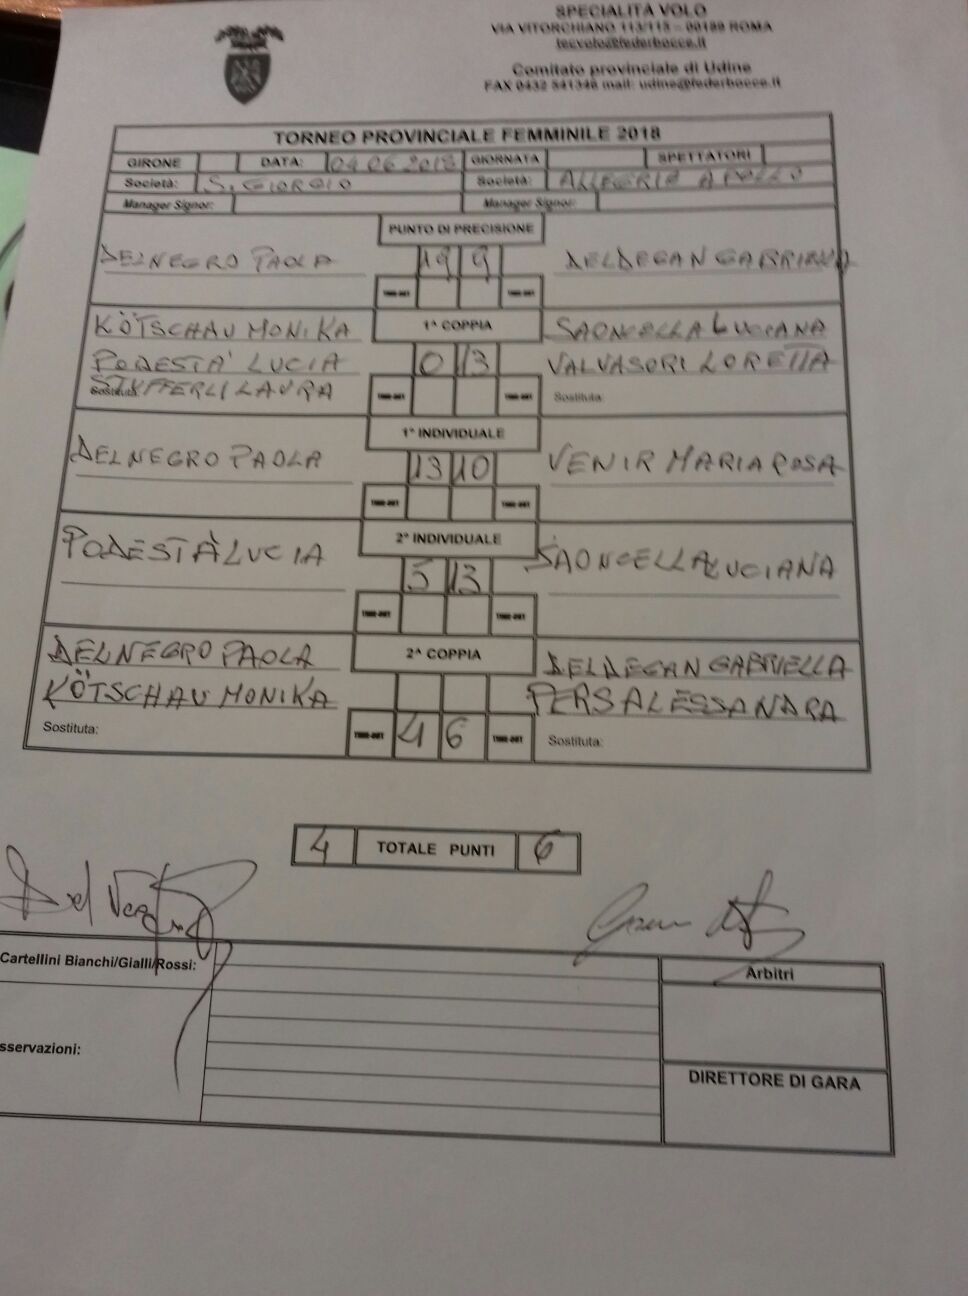 SPECIALITÀ VOLO
VIA VITORCHIANO 113/115 – 00189 ROMA
tecvolo@federbocce.it
Comitato provinciale di Udine
FAX 0432 541346 mail: udine@federbocce.it
TORNEO PROVINCIALE FEMMINILE 2018
GIRONE DATA: 04.06.2018 GIORNATA SPETTATORI
Società: S. GIORGIO Società: ALLEGRIA APOLLO
Manager Signor: Manager Signor:
PUNTO DI PRECISIONE
DELNEGRO PAOLA 19 9 DELDEGAN GABRIELLA
TIME-OUT TIME-OUT
KÖTSCHAU MONIKA 1ª COPPIA SAONCELLA LUCIANA
PODESTA' LUCIA 0 13 VALVASORI LORETTA
Sostituta: STIFFERLI LAURA TIME-OUT TIME-OUT Sostituta:
1° INDIVIDUALE
DELNEGRO PAOLA 13 10 VENIR MARIA ROSA
TIME-OUT TIME-OUT
2° INDIVIDUALE
PODESTÀ LUCIA 5 13 SAONCELLA LUCIANA
TIME-OUT TIME-OUT
DELNEGRO PAOLA 2ª COPPIA DELDEGAN GABRIELLA
KÖTSCHAU MONIKA PERS ALESSANDRA
Sostituta: TIME-OUT 4 6 TIME-OUT Sostituta:
4 TOTALE PUNTI 6
Cartellini Bianchi/Gialli/Rossi: Arbitri
sservazioni:
DIRETTORE DI GARA